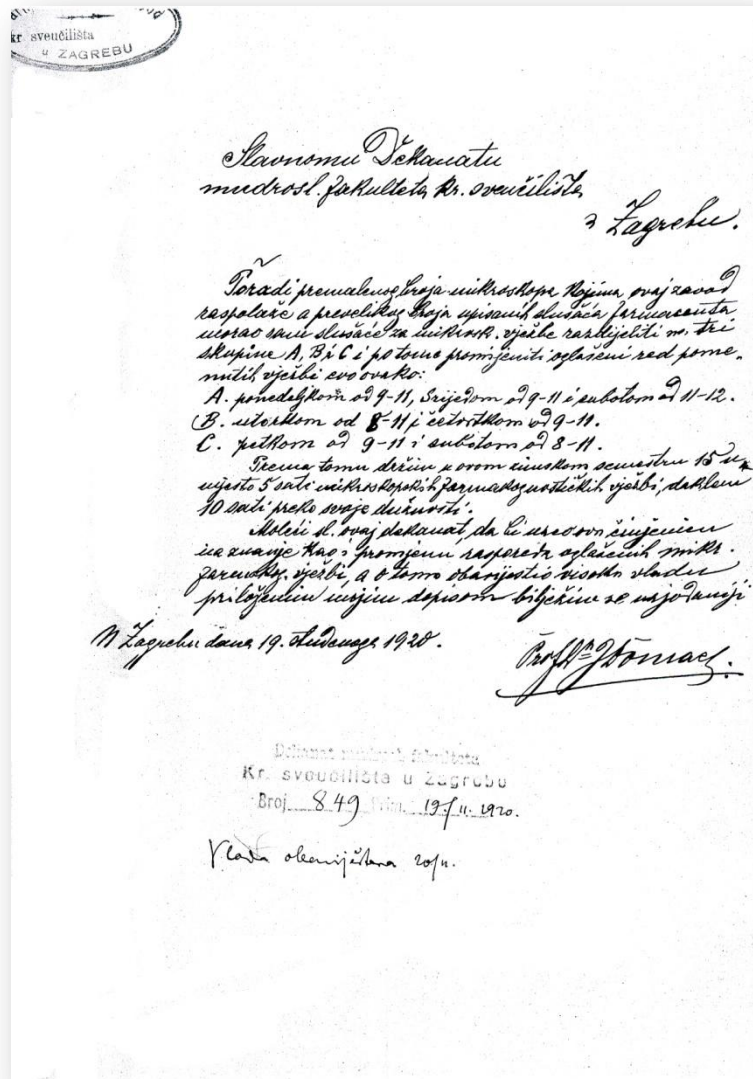 kr sveučilišta
u ZAGREBU
Slavnomu Dekanatu
mudrosl. fakulteta kr. sveučilišta
u Zagrebu.
Poradi premalenog broja mikroskopa kojima ovaj zavod
raspolaže a prevelikog broja upisanih slušača farmaceuta
morao sam slušače za mikrosk. vježbe razdijeliti u tri
skupine A, B i C i po tome promijeniti oglašeni red pome-
nutih vježbi evo ovako:
A. ponedjeljkom od 9-11, Srijedom od 9-11 i subotom od 11-12.
B. utorkom od 8-11 i četvrtkom od 9-11.
C. petkom od 9-11 i subotom od 8-11.
Prema tomu držim u ovom zimskom semestru 15 u
mjesto 5 sati mikroskopskih farmakognostičkih vježbi, dakle
10 sati preko svoje dužnosti.
Moleći sl. ovaj dekanat, da bi uzeo ovu činjenicu
na znanje kao i promjenu rasporeda oglašenih mikr.
vježbi, a o tome obavijestio visoku vladu
priloženim mojim dopisom bilježim se
U Zagrebu dana 19. studenoga 1920.
Prof Dr Domac.
Dekanat fakulteta
Kr. sveučilišta u Zagrebu
Broj 849 Prim. 19/11. 1920.
Vlada obaviještena 20/11.